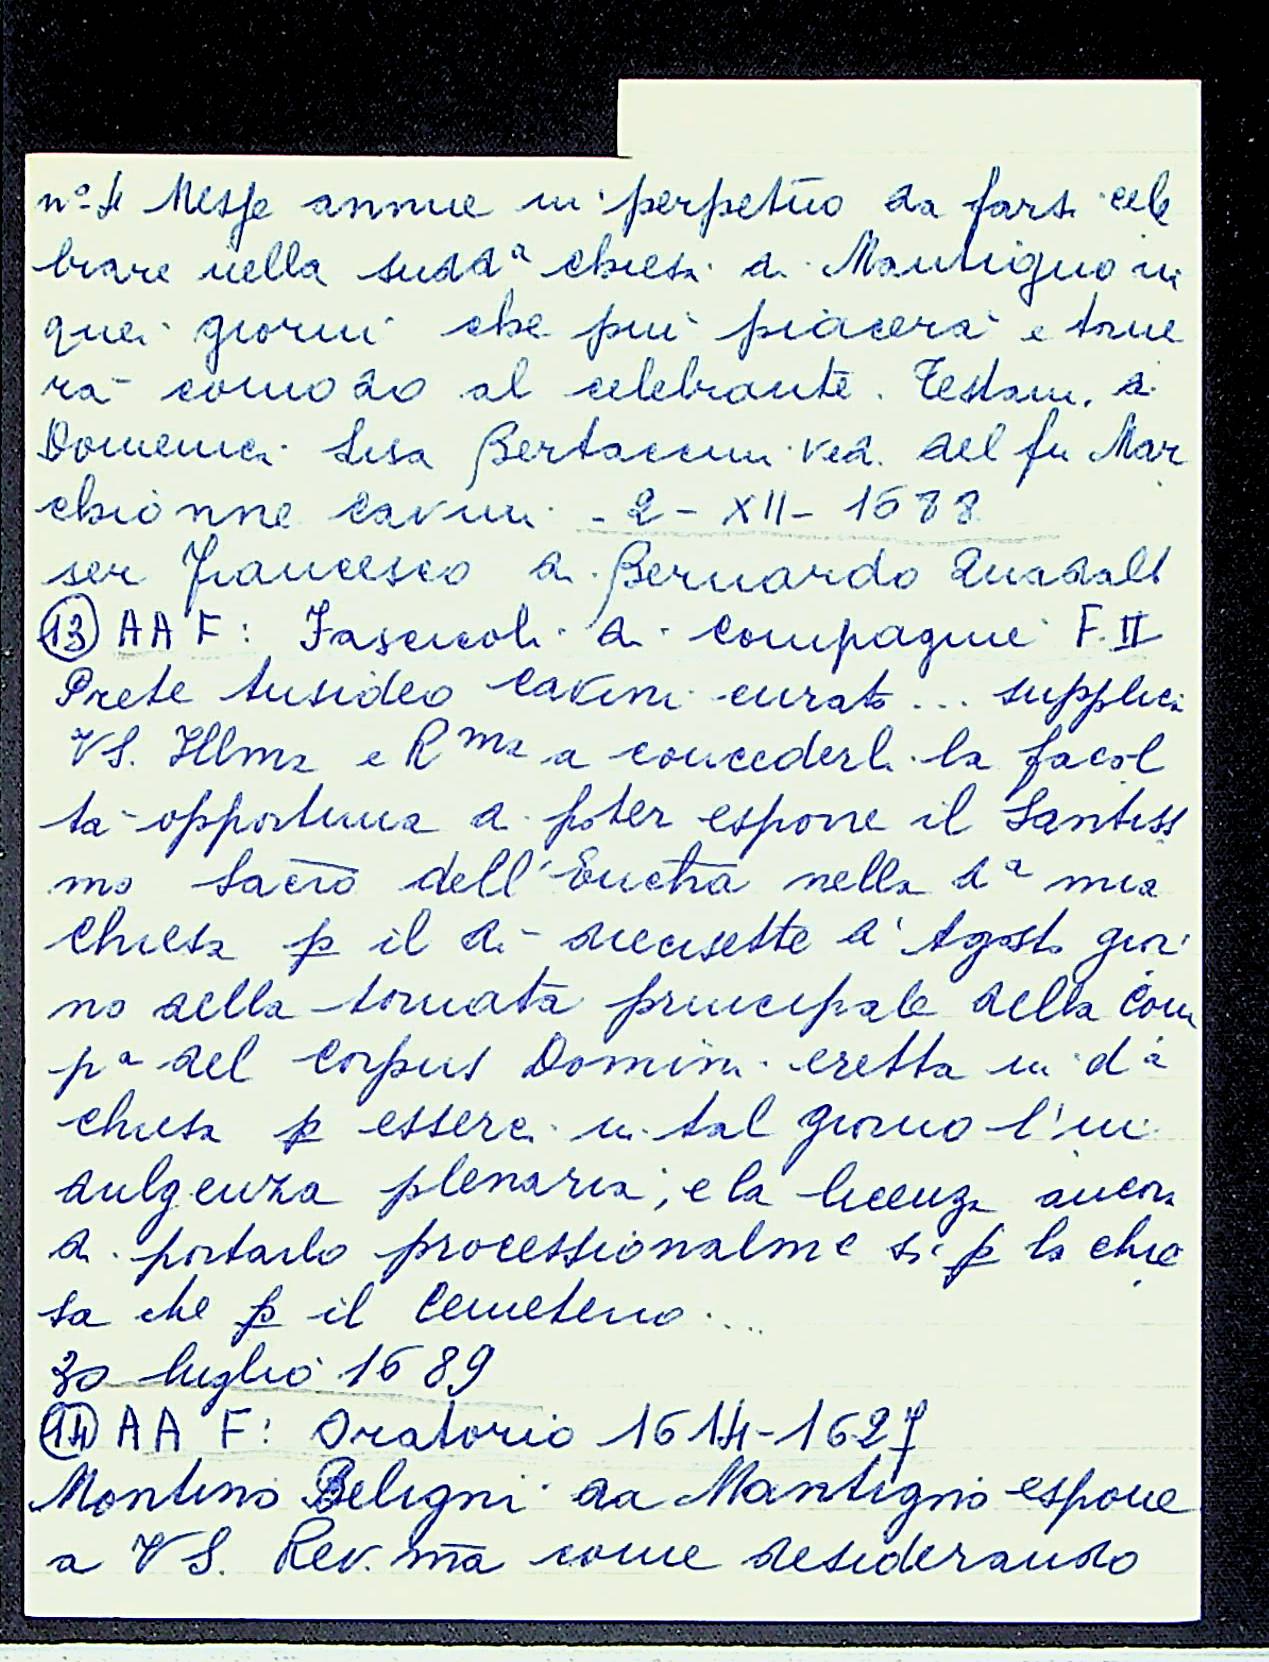 n° 4 Messe annue in perpetuo da farsi cele
brare nella sudd.ª chiesa di Mantigno in
quei giorni che più piacerà e torne
rà comodo al celebrante. Testam. di
Domenica Lisa Bertaccini ved. del fu Mar
chionne Cavini - 2 - XII - 1688
ser Francesco di Bernardo Quadalt
(13) AAF: Fascicoli di compagnie F. II
Prete Ausideo Cavini curato ... supplica
VS. Illma e Rma a concederli la facol
tà opportuna di poter esporre il Santiss
mo Sacro dell'Euctra nella dª mia
Chiesa p il dì diecisette d'Agosto gior
no della tornata principale della Com
pª del Corpus Domini eretta in dª
chiesa p esserci in tal giorno l'in
dulgenza plenaria; e la licenza ancora
di portarlo processionalme sì p la chie
sa che p il Cemeterio ...
30 luglio 1689
(14) AAF: Oratorio 1614-1627
Montino Beligni da Mantigno espone
a VS. Rev.ma come desiderando